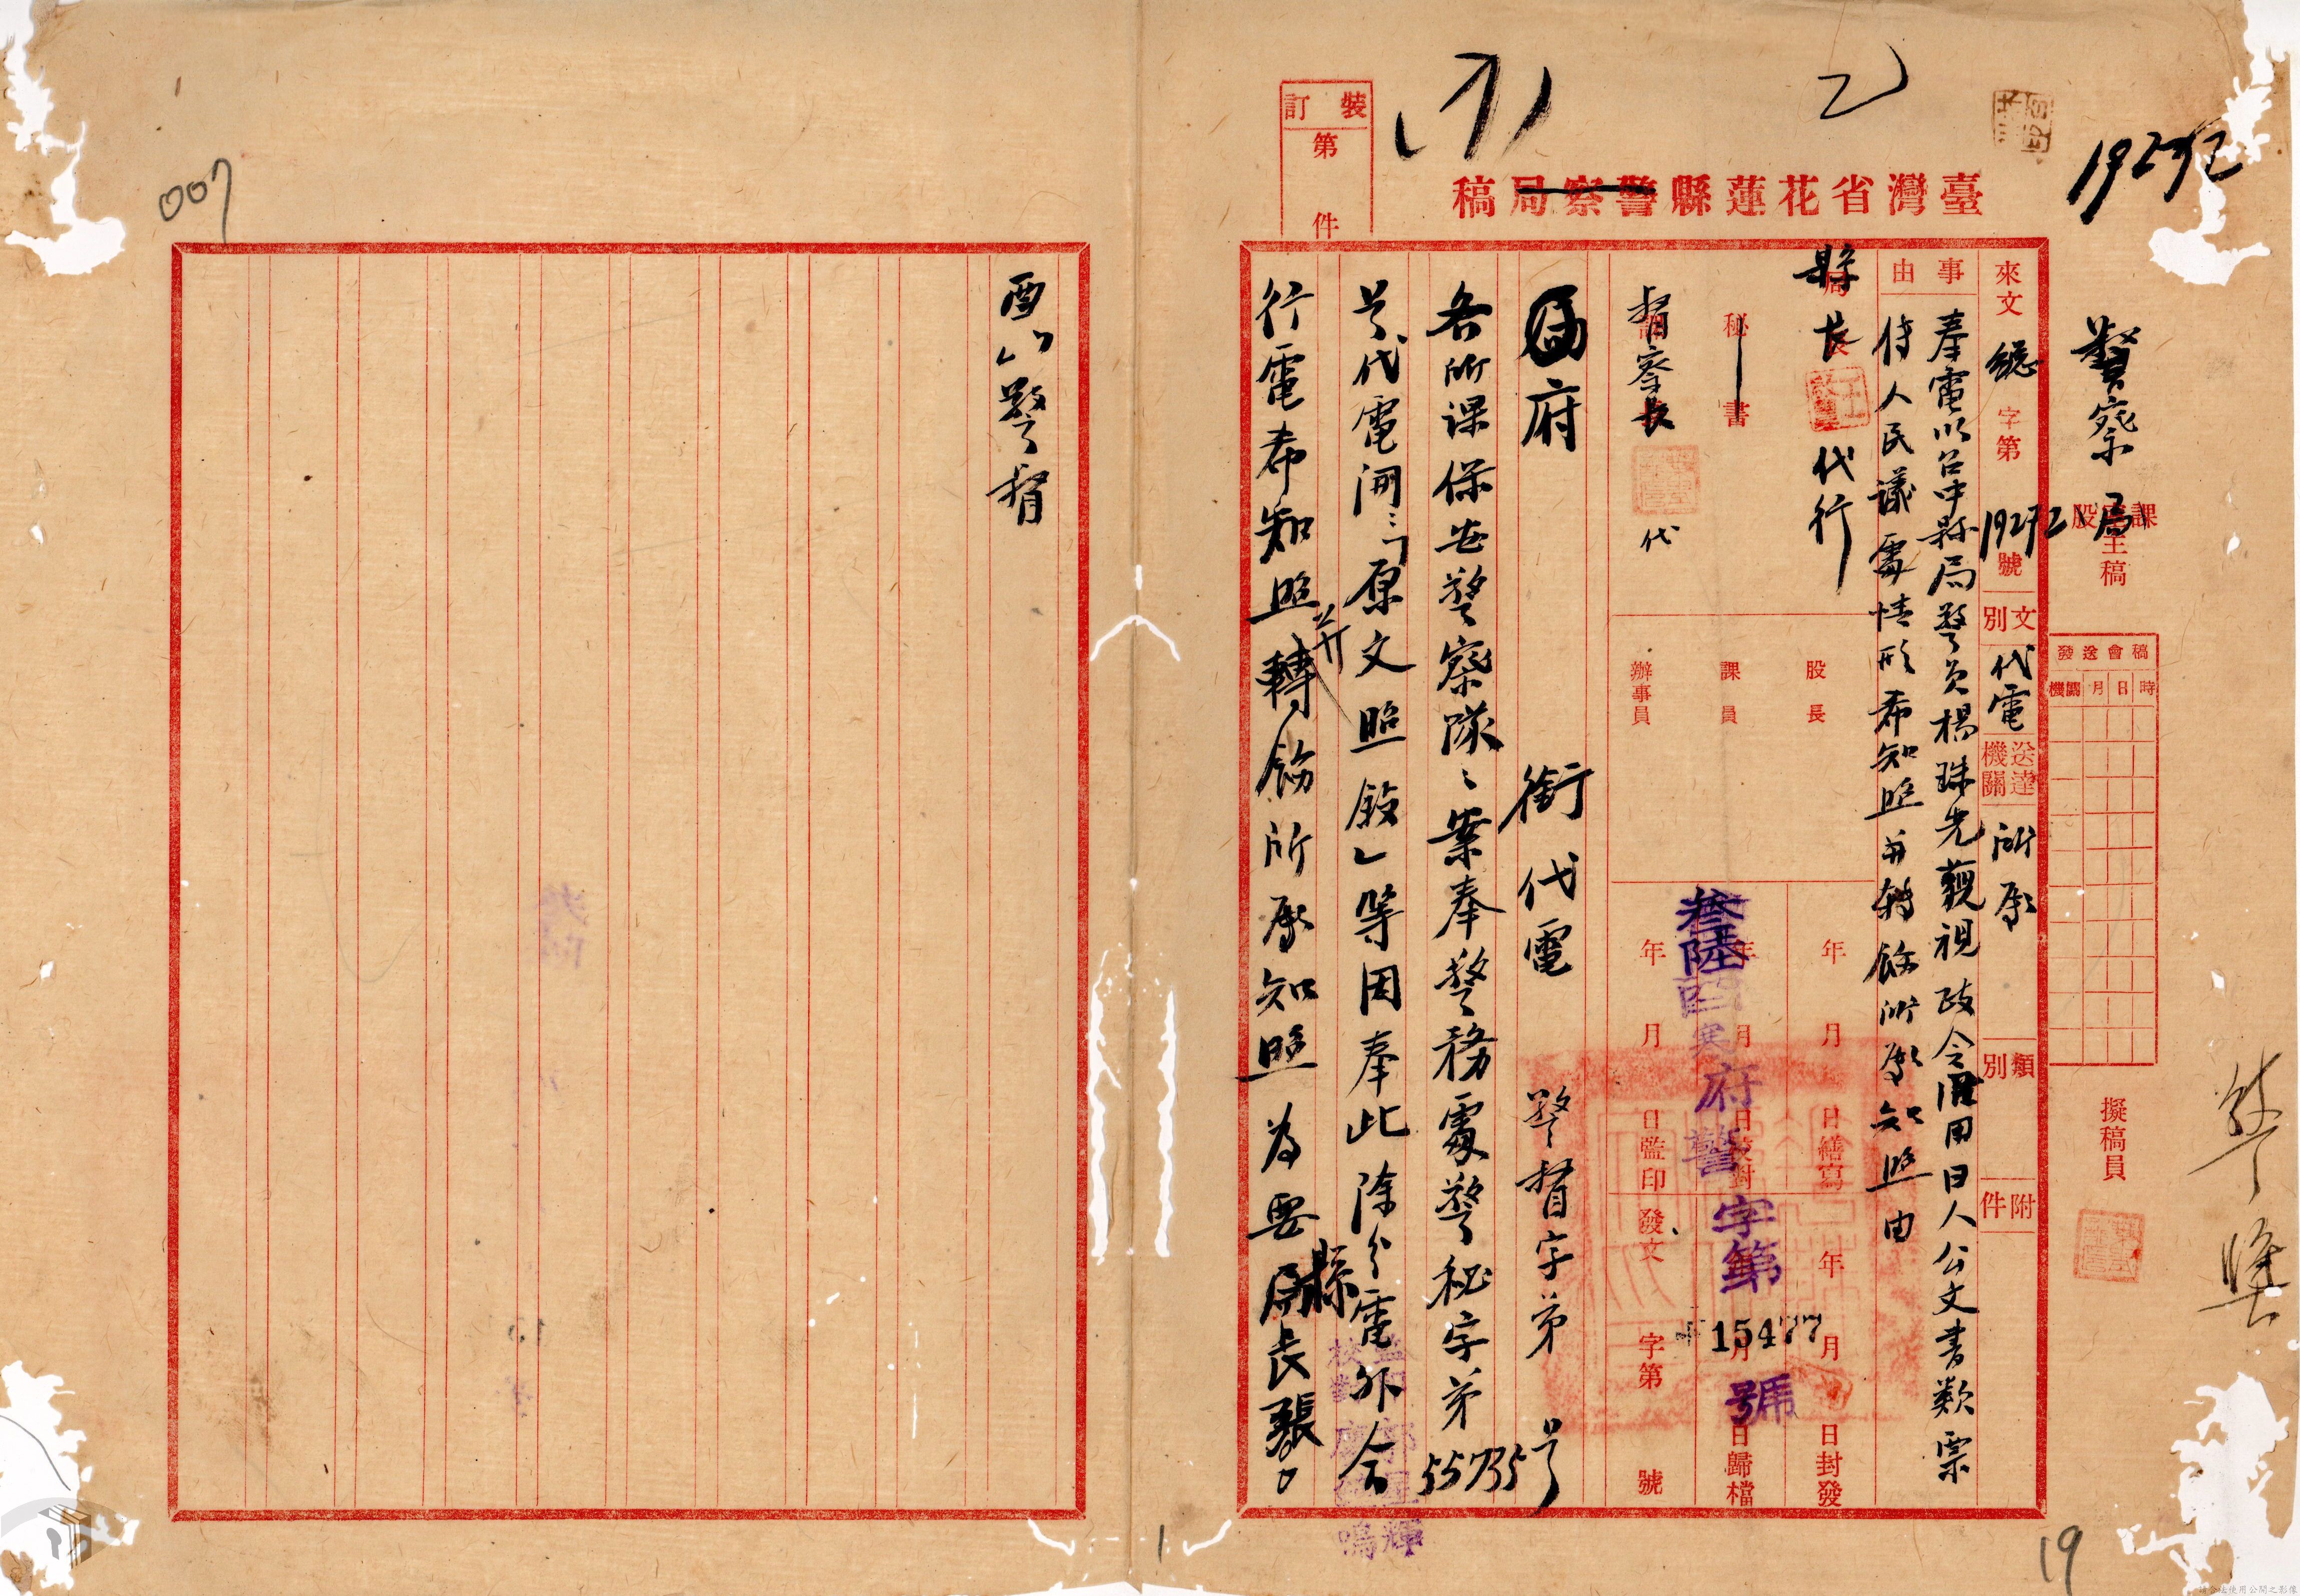 19272
臺灣省花蓮縣警察局稿
裝訂
第 件
警察局
課
股主稿
擬稿員
稿會送發
時日月機關
來文 總字第19272號
文別 代電
送達機關 所屬
類別
附件
事由
奉電以台中縣局警員楊珠先藐視政令習用日人公文書欺票
侍人民議處情形希知照並轉飭所屬知照由
縣長 代行
秘書
督察長 代
股長
課員
辦事員
年 月 日繕寫
年 月 日校對
年 月 日監印
年 月 日封發
月 日歸檔
發文 字第 號
叁陸酉寒府警字第15477號
府銜代電 警督字第 号
各所課保安警察隊、案奉警務處警秘字第55735
号代電開:「原文照敘」等因奉此除分電外合
行電希知照并轉飭所屬知照為要縣長張
校對
監印
酉 警督
007
19